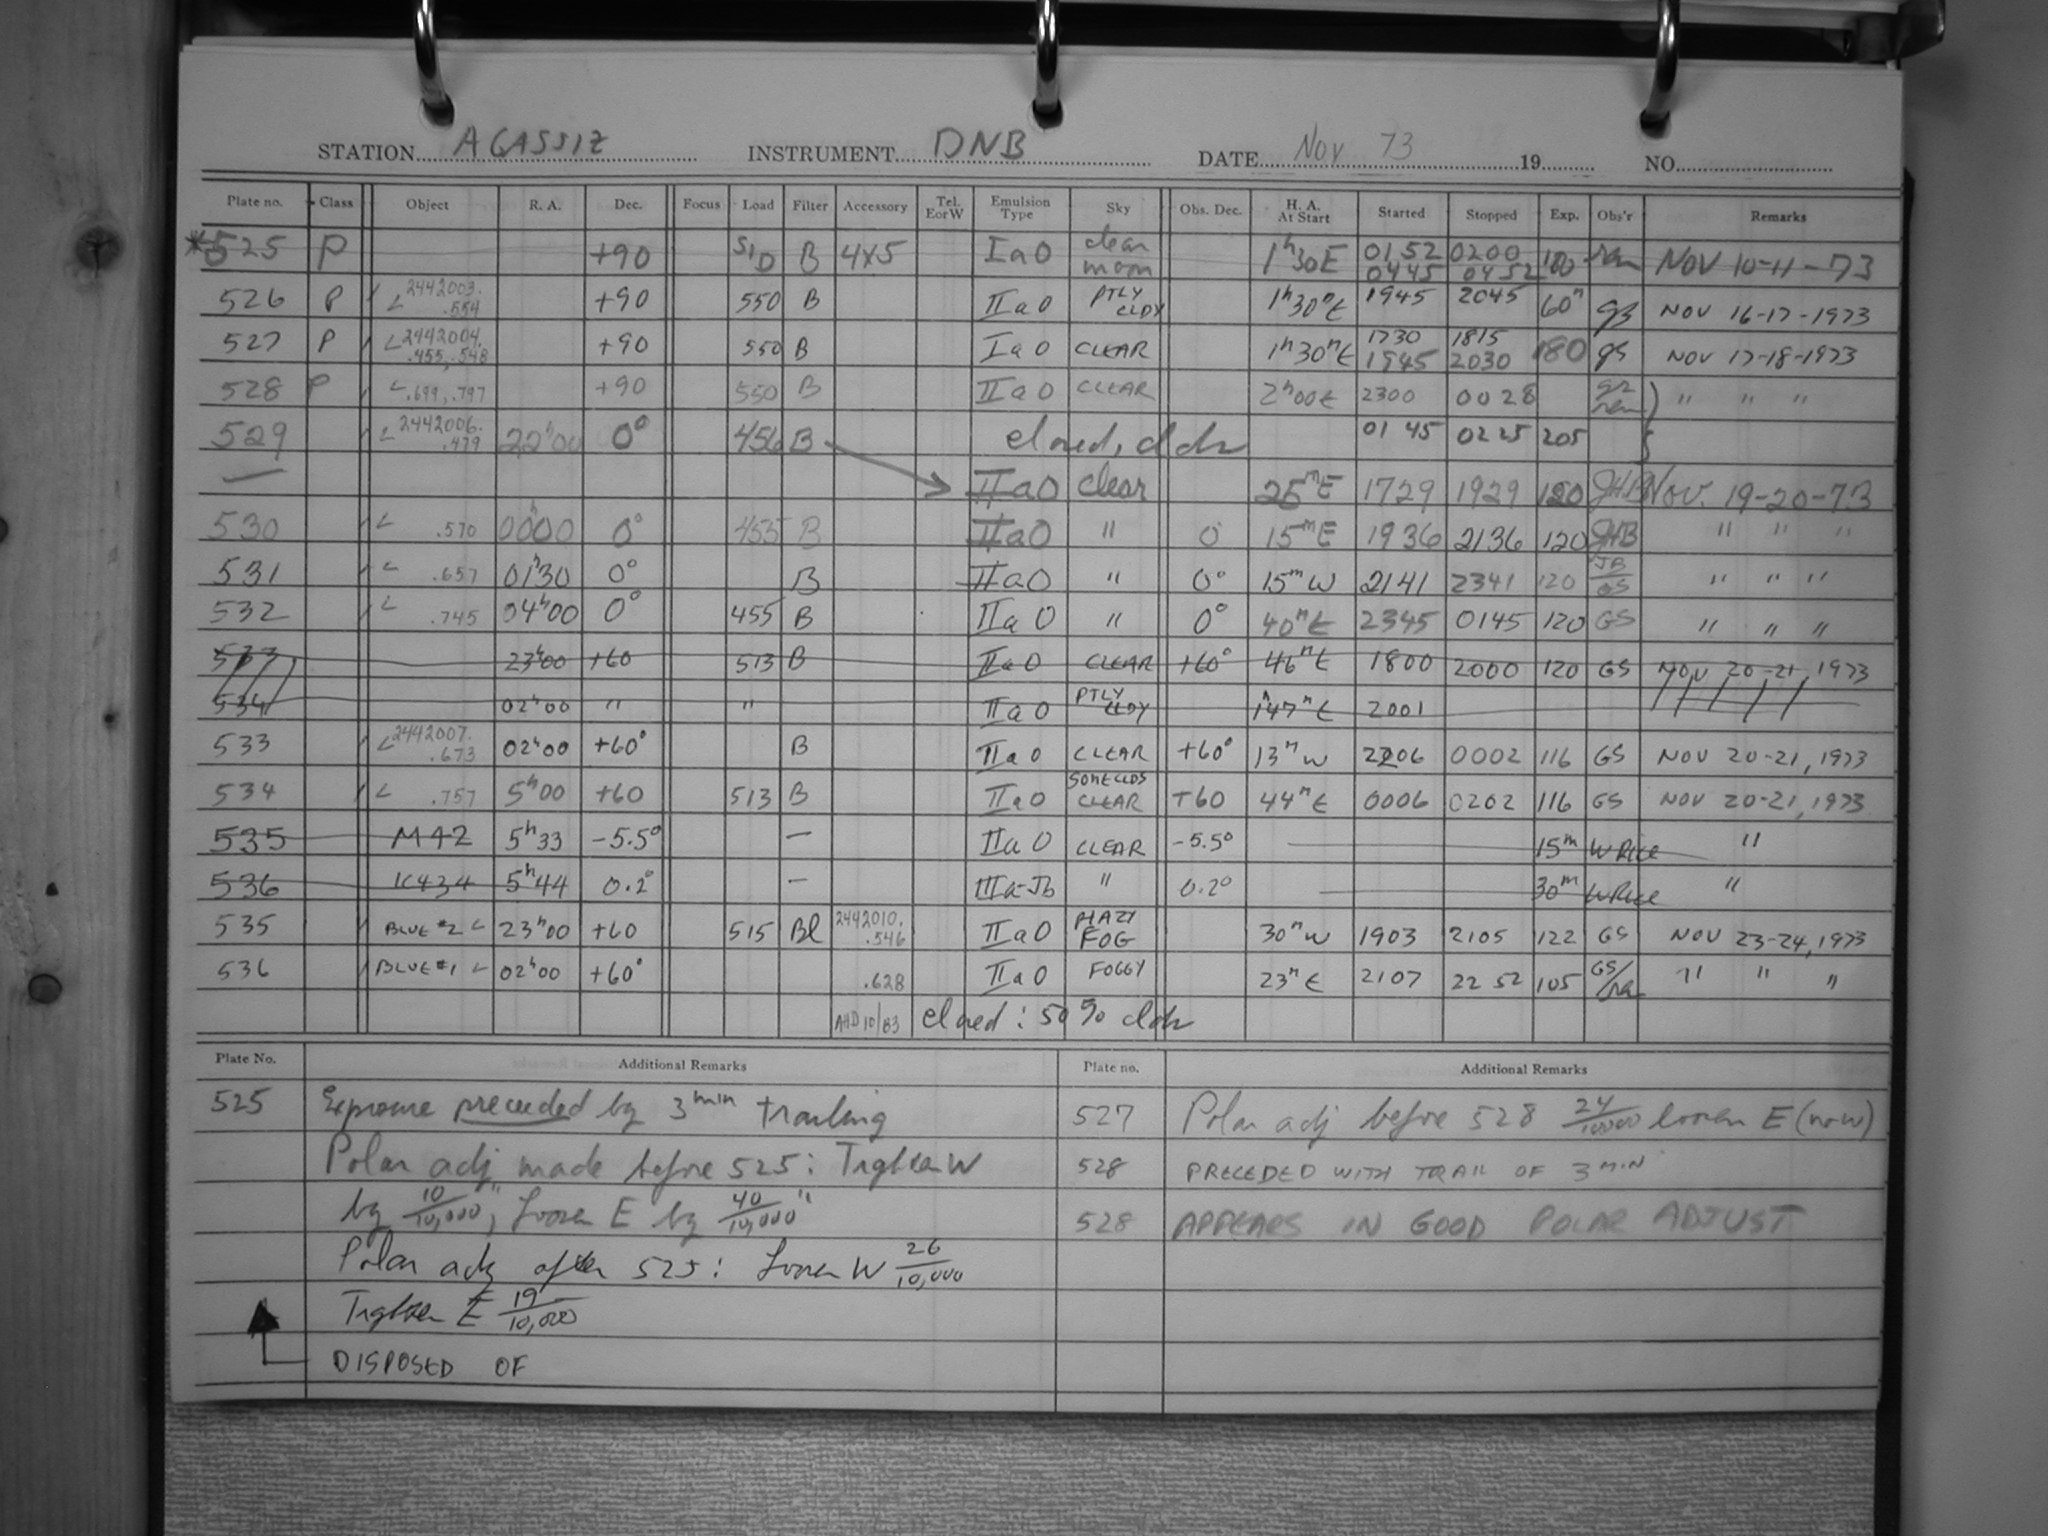 STATION AGASSIZ INSTRUMENT DNB DATE Nov 73 19 NO.
Plate no. Class Object R. A. Dec. Focus Load Filter Accessory Tel. E or W Emulsion Type Sky Obs. Dec. H. A. At Start Started Stopped Exp. Obs'r Remarks
*525 P +90 B 4x5 IaO clear moon 1h30E 0152 0200 0445 0452 100 NOV 10-11-73
526 P L 2442003.554 +90 550 B IIaO PTLY CLDY 1h30mE 1945 2045 60m gs NOV 16-17-1973
527 P L 2442004.455,.548 +90 550 B IaO CLEAR 1h30mE 1730 1815 1945 2030 180 gs NOV 17-18-1973
528 P L .699,.797 +90 550 B IIaO CLEAR 2h00E 2300 0028 " " "
529 L 2442006.479 22h00 0° 456 B closed, clds 0145 0225 205
— IIaO clear 25mE 1729 1929 120 JHB Nov. 19-20-73
530 L .570 00h00 0° 455 B IIaO " 0 15mE 1936 2136 120 JHB " " "
531 L .657 01h30 0° B IIaO " 0° 15mW 2141 2341 120 JB GS " " "
532 L .745 04h00 0° 455 B IIaO " 0° 40mE 2345 0145 120 GS " " "
533 23h00 +60 513 B IIaO CLEAR +60° 46mE 1800 2000 120 GS NOV 20-21, 1973
534 02h00 " " IIaO PTLY CLDY 1h47mE 2001
533 L 2442007.673 02h00 +60° B IIaO CLEAR +60° 13mW 2206 0002 116 GS NOV 20-21, 1973
534 L .757 5h00 +60 513 B IIaO SOME CLDS CLEAR +60 44mE 0006 0202 116 GS NOV 20-21, 1973
535 M42 5h33 -5.5° — IIaO CLEAR -5.5° 15m W Rice "
536 K434 5h44 0.2° — IIIa-Jb " 0.2° 30m W Rice "
535 BLUE #2 L 23h00 +60 515 Bl 2442010.546 IIaO HAZY FOG 30mW 1903 2105 122 GS NOV 23-24, 1973
536 BLUE #1 L 02h00 +60° .628 IIaO FOGGY 23mE 2107 2252 105 GS/ra " " "
AHD 10/83 closed: 50% clds
Plate No. Additional Remarks Plate no. Additional Remarks
525 Exposure preceded by 3 min trailing
Polar adj made before 525: Tighten W
by 10/10,000", Loosen E by 40/10,000"
Polar adj after 525: Loosen W 26/10,000
Tighten E 19/10,000
DISPOSED OF
527 Polar adj before 528 24/10000 loosen E (now)
528 PRECEDED WITH TRAIL OF 3 MIN
528 APPEARS IN GOOD POLAR ADJUST